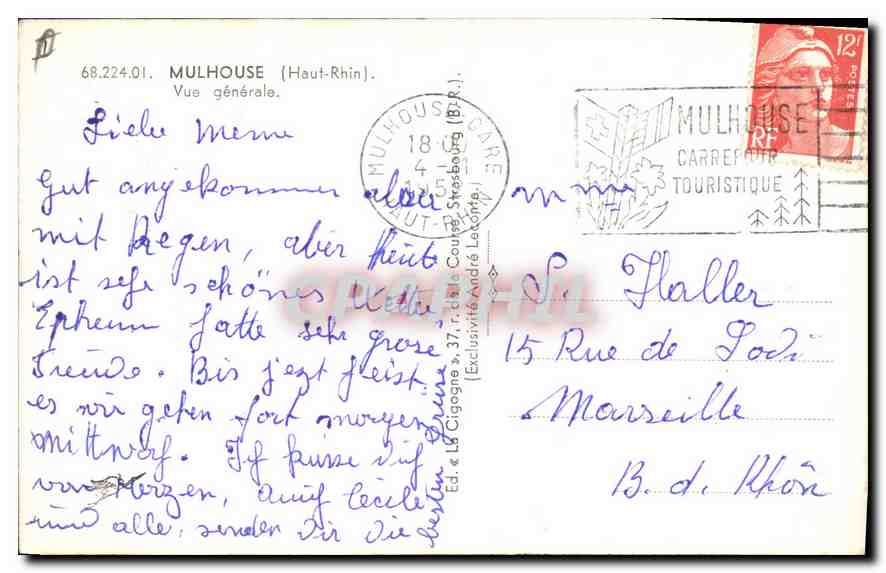 68.224.01. MULHOUSE (Haut-Rhin).
Vue générale.
Liebe Meme
Gut angekommen aber
mit Regen, aber heute
ist sehr schönes Wetter,
Ephrem hatte sehr grose
Freude. Bis jezt heist
es wir gehen fort morgen
Mittwoch. Ich küsse dich
von Herzen, auch Cécile
und alle, senden dir die
besten Grüsse
Ed. « La Cigogne », 37, r. de la Course, Strasbourg (B.-R.).
(Exclusivité André Leconte)
MULHOUSE GARE
18
HAUT-RHIN
MULHOUSE
CARREFOUR
TOURISTIQUE
12F
POSTES
RF
Mme
S. Haller
15 Rue de Lodi
Marseille
B. d. Rhôn
CPARAMA